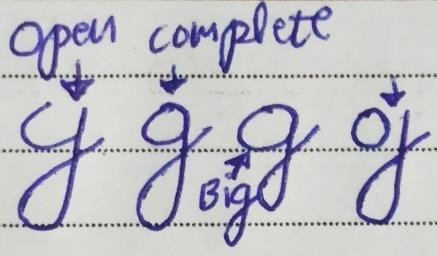 open complete
g g g g
Big